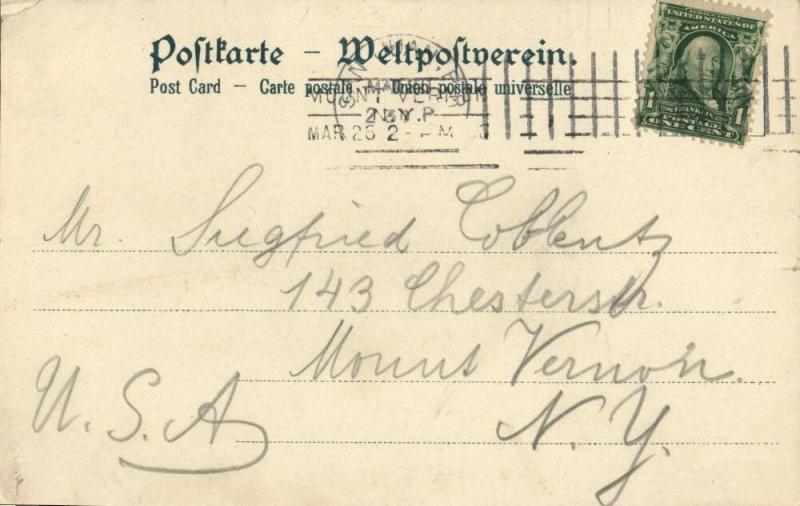 Postkarte – Weltpostverein.
Post Card – Carte postale – Union postale universelle
MOUNT VERNON
N.Y.
MAR 26 2- PM
UNITED STATES OF
AMERICA
FRANKLIN
1 ONE CENT 1
Mr. Siegfried Coblentz
143 Chesterstr.
Mount Vernon.
U.S.A
N.Y.